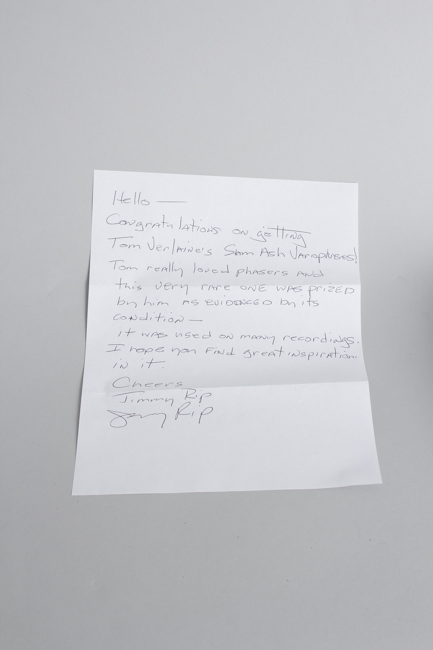 Hello —
Congratulations on getting
Tom Verlaine's Sam Ash Varaphaser!
Tom really loved phasers and
this very rare one was prized
by him as evidenced by its
condition —
it was used on many recordings.
I hope you find great inspiration
in it
Cheers
Jimmy Rip
Jimmy Rip